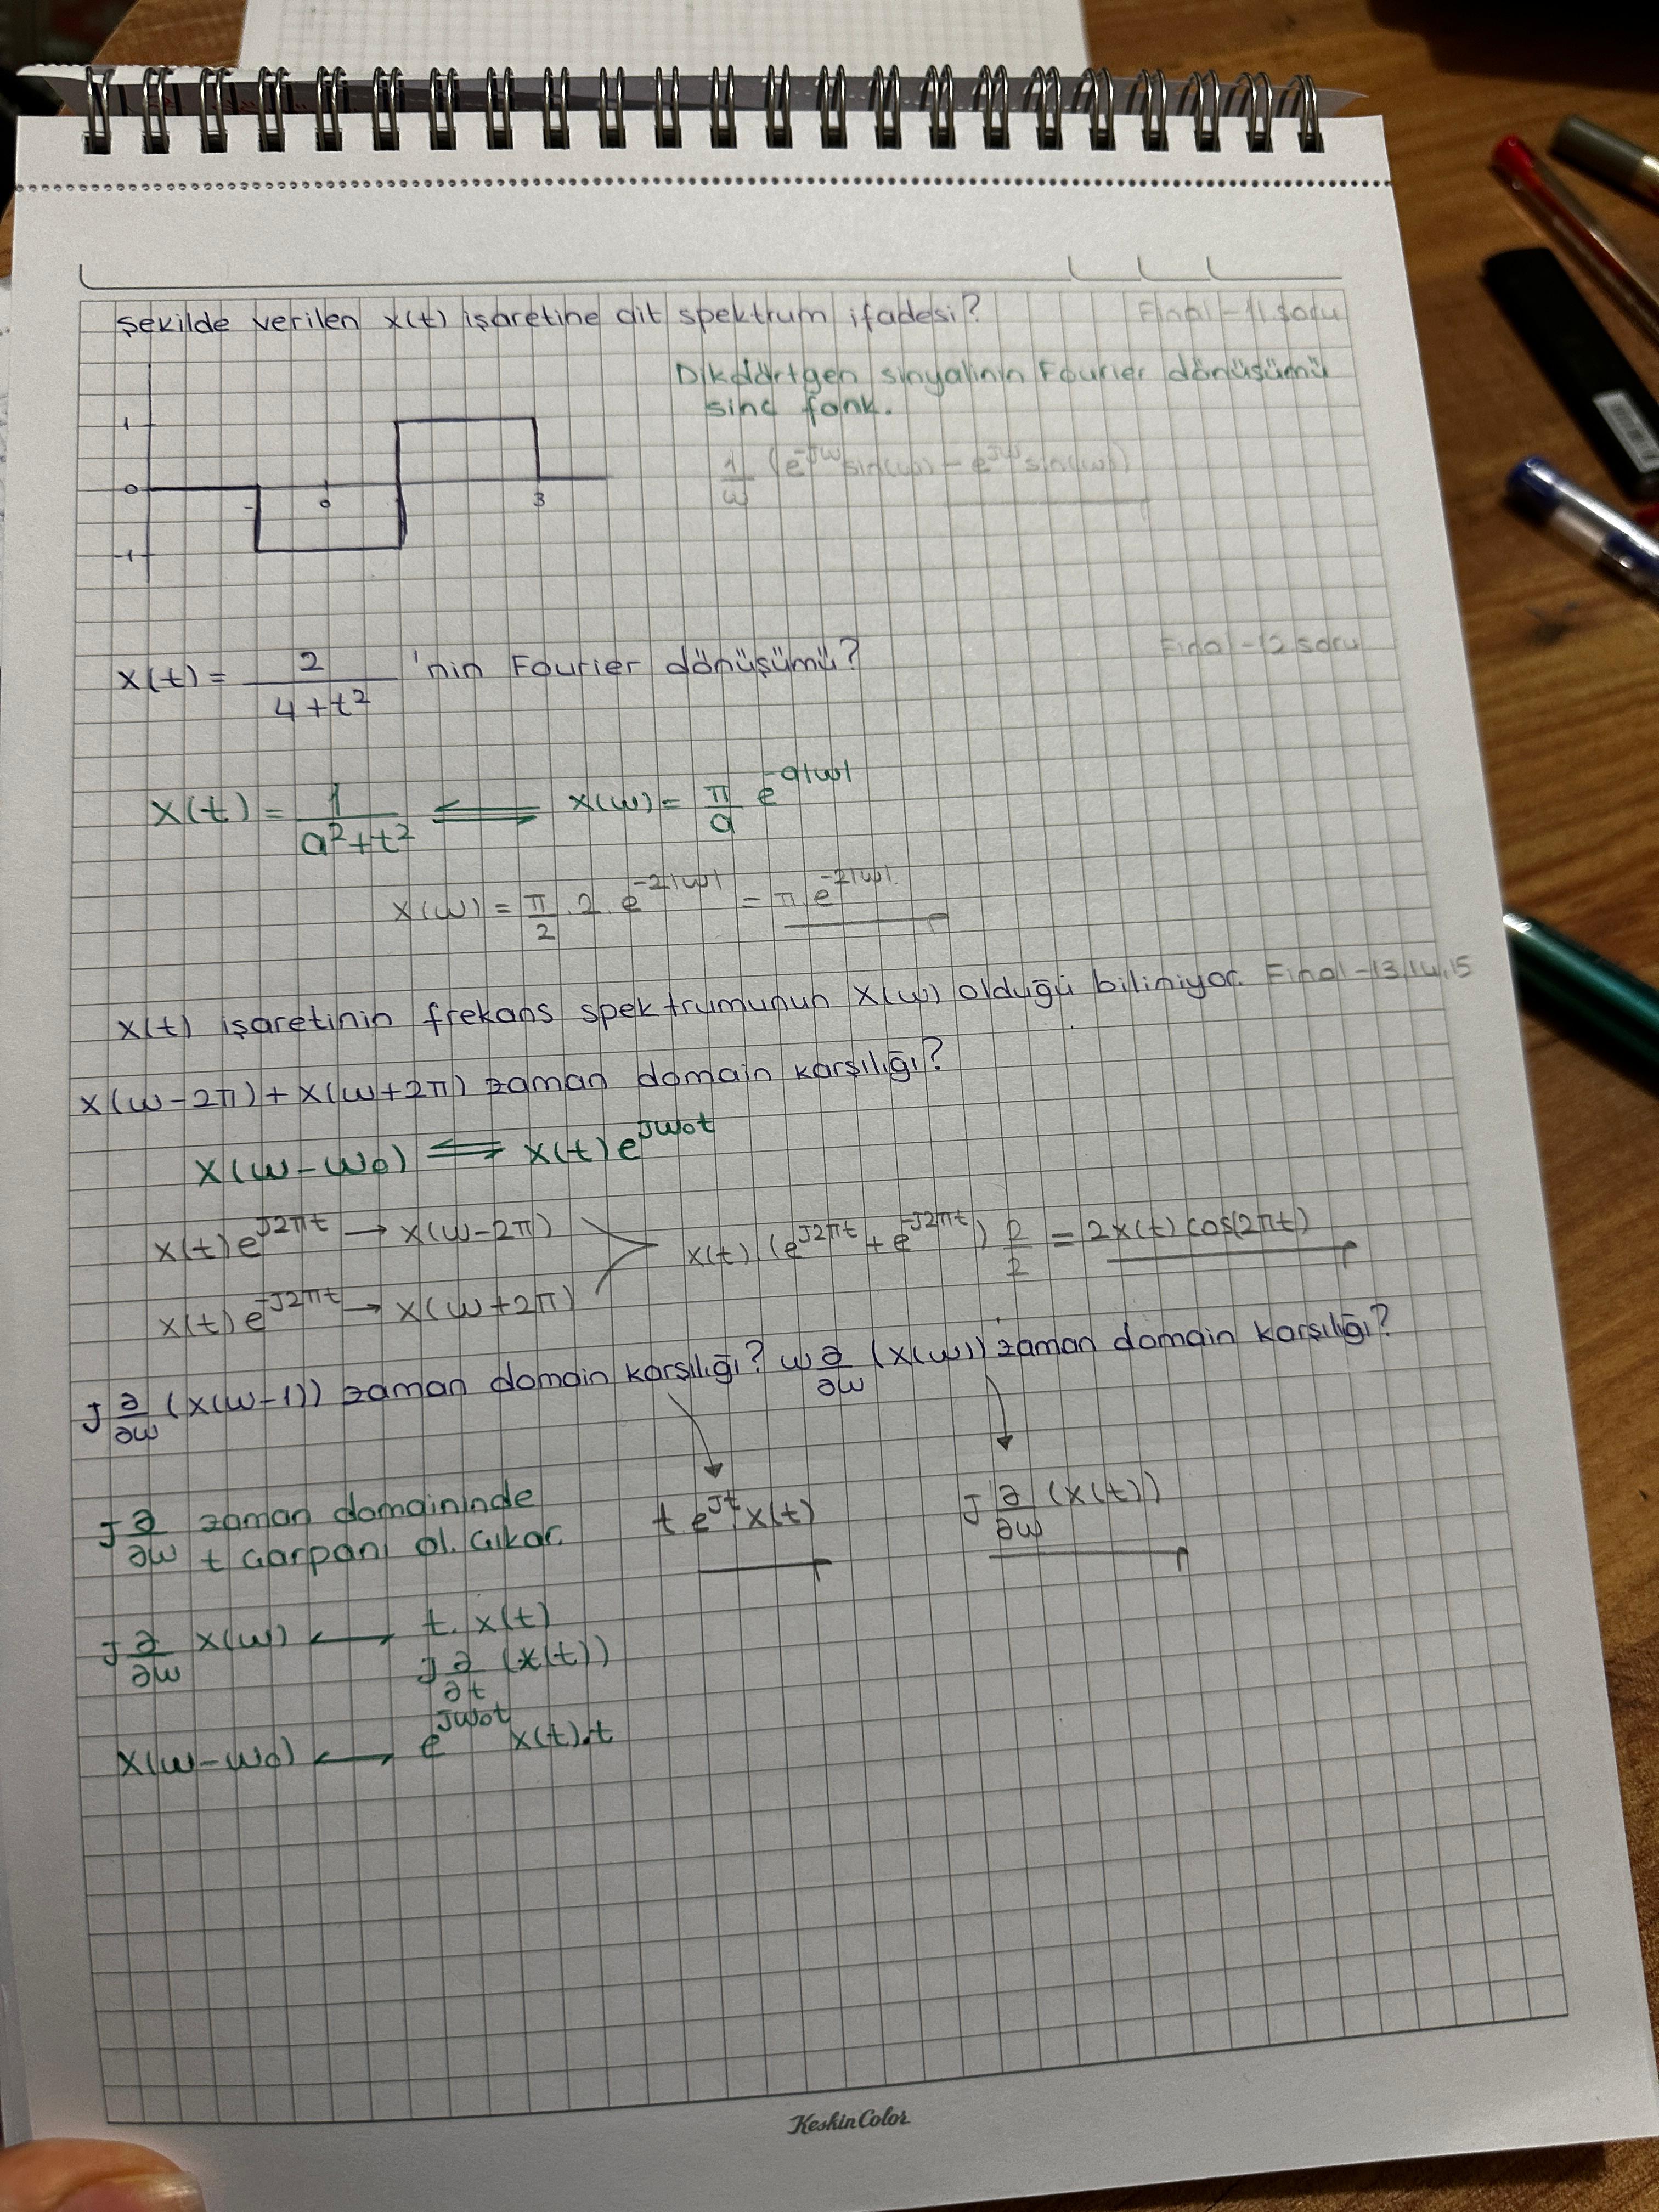 şekilde verilen x(t) işaretine ait spektrum ifadesi? Final-11 soru
Dikdörtgen sinyalinin Fourier dönüşümü
sinc fonk.
1/ω (e^-jω sin(ω) - e^jω sin(ω))
1
0 0 3
-1
x(t) = 2/(4+t²) 'nin Fourier dönüşümü? Final-12 soru
x(t) = 1/(a²+t²) ⇐⇒ x(ω) = π/a e^-a|ω|
x(ω) = π/2 . 2 . e^-2|ω| = π e^-2|ω|
x(t) işaretinin frekans spektrumunun x(ω) olduğu biliniyor. Final-13,14,15
x(ω-2π) + x(ω+2π) zaman domain karşılığı?
x(ω-ω0) ⇐⇒ x(t) e^jω0t
x(t) e^j2πt → x(ω-2π)
x(t) e^-j2πt → x(ω+2π)
x(t) . (e^j2πt + e^-j2πt) 2/2 = 2x(t) cos(2πt)
j ∂/∂ω (x(ω-1)) zaman domain karşılığı? ω ∂/∂ω (x(ω)) zaman domain karşılığı?
j ∂/∂ω zaman domaininde
t çarpanı ol. çıkar.
t e^jt . x(t)
j ∂/∂ω (x(t))
j ∂/∂ω x(ω) ←→ t. x(t)
j ∂/∂t (x(t))
x(ω-ω0) ←→ e^jω0t x(t).t
KeskinColor